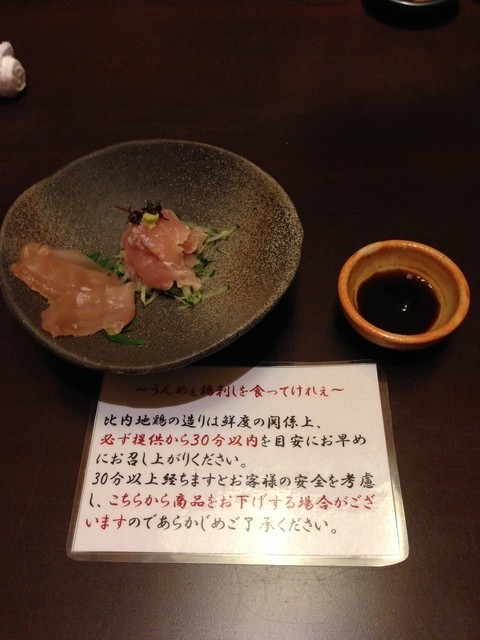 ～うんめぇ鶏刺しを食ってけれぇ～
比内地鶏の造りは鮮度の関係上、
必ず提供から30分以内を目安にお早め
にお召し上がりください。
30分以上経ちますとお客様の安全を考慮
し、こちらから商品をお下げする場合がござ
いますのであらかじめご了承ください。